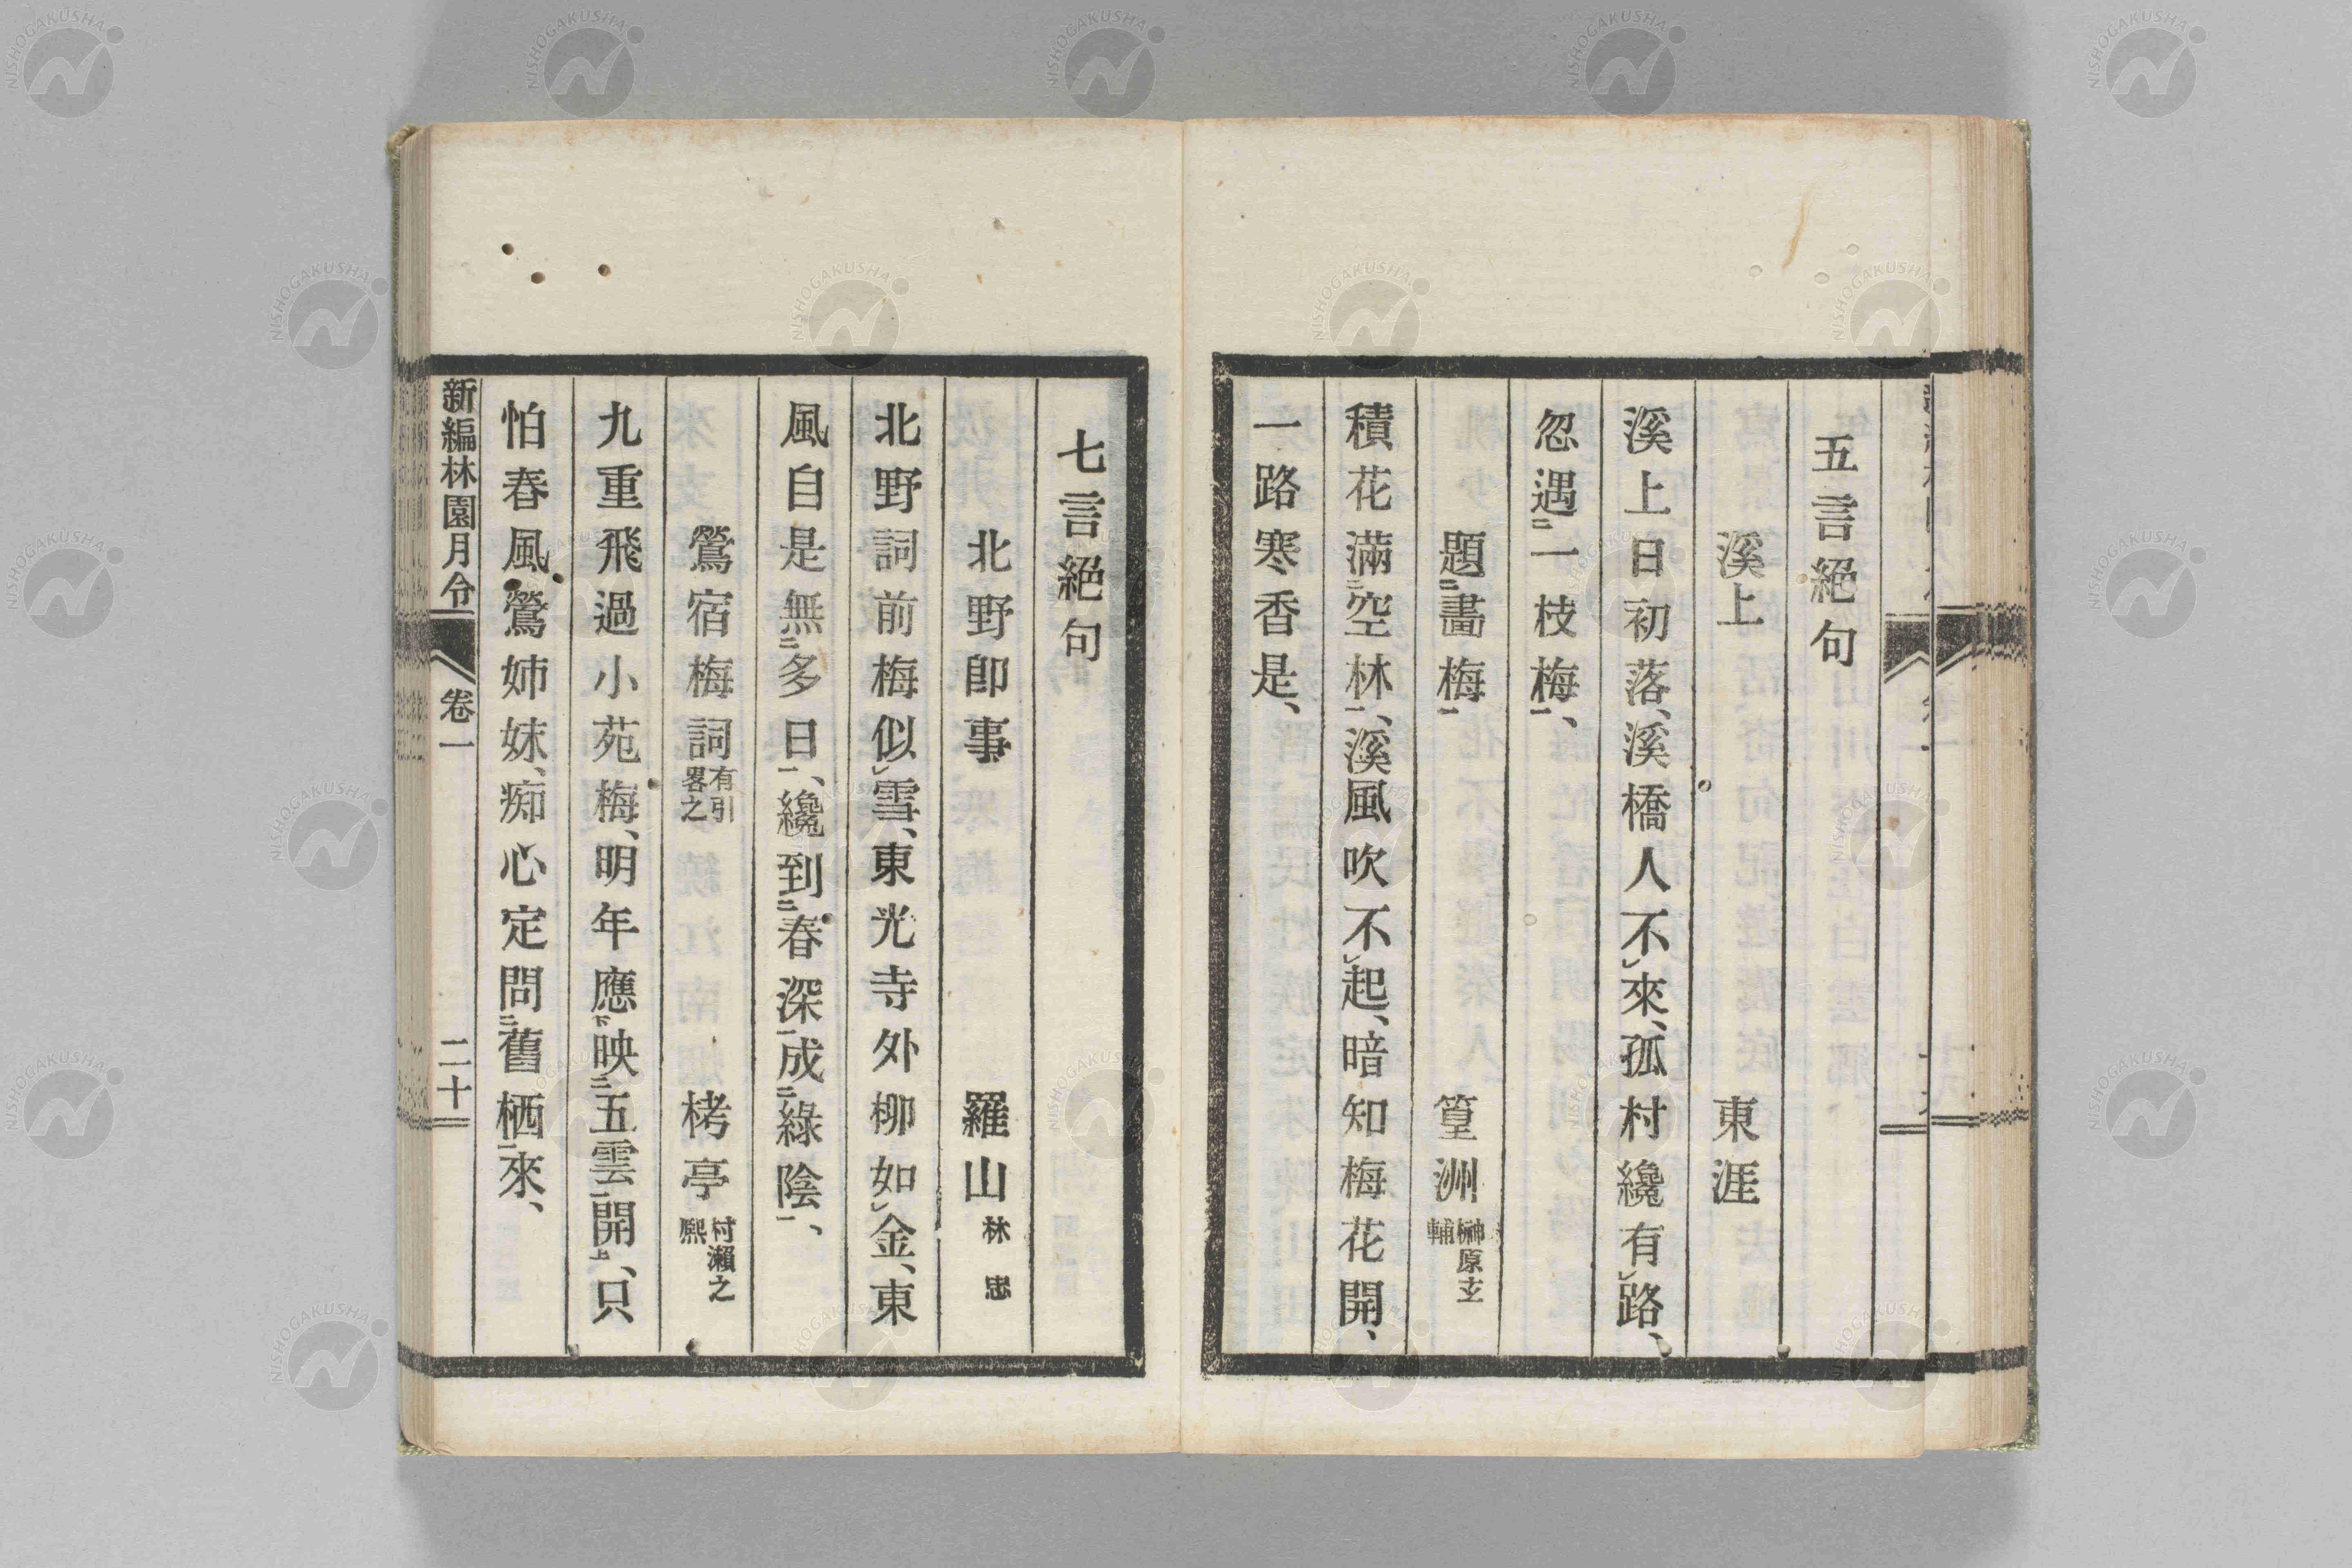 五言絕句
溪上　東涯
溪上日初落、溪橋人不㆑來、孤村纔有㆑路、
忽遇㆓一枝梅㆒、
題㆓畫梅㆒　篁洲 榊原玄輔
積花滿㆓空林㆒、溪風吹不㆑起、暗知梅花開、
一路寒香是、
七言絕句
北野卽事　羅山 林忠
北野詞前梅似㆑雪、東光寺外柳如㆑金、東
風自是無㆓多日㆒、纔到㆓春深㆒成㆓綠陰㆒、
鶯宿梅詞 有引畧之　栲亭 村瀨之熙
九重飛過小苑梅、明年應㆘映㆓五雲㆒開㆖、只
怕春風鶯姉妹、痴心定問㆓舊栖㆒來、
新編林園月令　卷一　二十
NISHOGAKUSHA